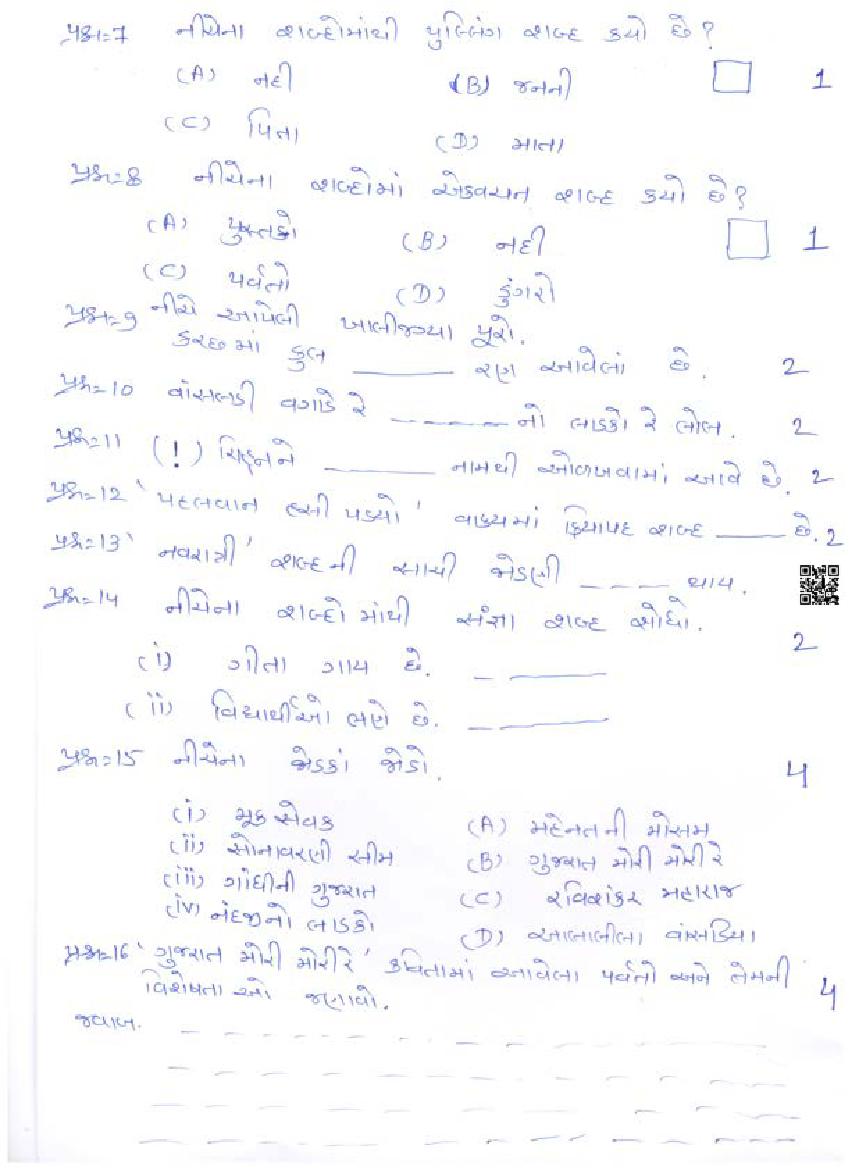 પ્રશ્ન=7 નીચેના શબ્દોમાંથી પુલ્લિંગ શબ્દ કયો છે?
(A) નદી (B) જનની 1
(C) પિતા (D) માતા
પ્રશ્ન=8 નીચેના શબ્દોમાં એકવચન શબ્દ કયો છે?
(A) પુસ્તકો (B) નદી 1
(C) પર્વતો (D) ડુંગરો
પ્રશ્ન=9 નીચે આપેલી ખાલીજગ્યા પૂરો.
કચ્છમાં કુલ ______ રણ આવેલાં છે. 2
પ્રશ્ન=10 વાંસલડી વગાડે રે ______ નો લાડકો રે લોલ. 2
પ્રશ્ન=11 (!) ચિહ્નને ______ નામથી ઓળખવામાં આવે છે. 2
પ્રશ્ન=12 'પહલવાન હસી પડ્યો' વાક્યમાં ક્રિયાપદ શબ્દ ____ છે. 2
પ્રશ્ન=13 'નવરાત્રી' શબ્દની સાચી જોડણી ____ થાય.
પ્રશ્ન=14 નીચેના શબ્દોમાંથી સંજ્ઞા શબ્દ શોધો.
2
(i) ગીતા ગાય છે. ______
(ii) વિદ્યાર્થીઓ ભણે છે. ______
પ્રશ્ન=15 નીચેના જોડકાં જોડો. 4
(i) મૂક સેવક (A) મહેનતની મોસમ
(ii) સોનાવરણી સીમ (B) ગુજરાત મોરી મોરી રે
(iii) ગાંધીની ગુજરાત (C) રવિશંકર મહારાજ
(iv) નંદજીનો લાડકો (D) આલાલીલા વાંસડિયા
પ્રશ્ન=16 'ગુજરાત મોરી મોરી રે' કવિતામાં આવેલા પર્વતો અને તેમની
વિશેષતાઓ જણાવો. 4
જવાબ.